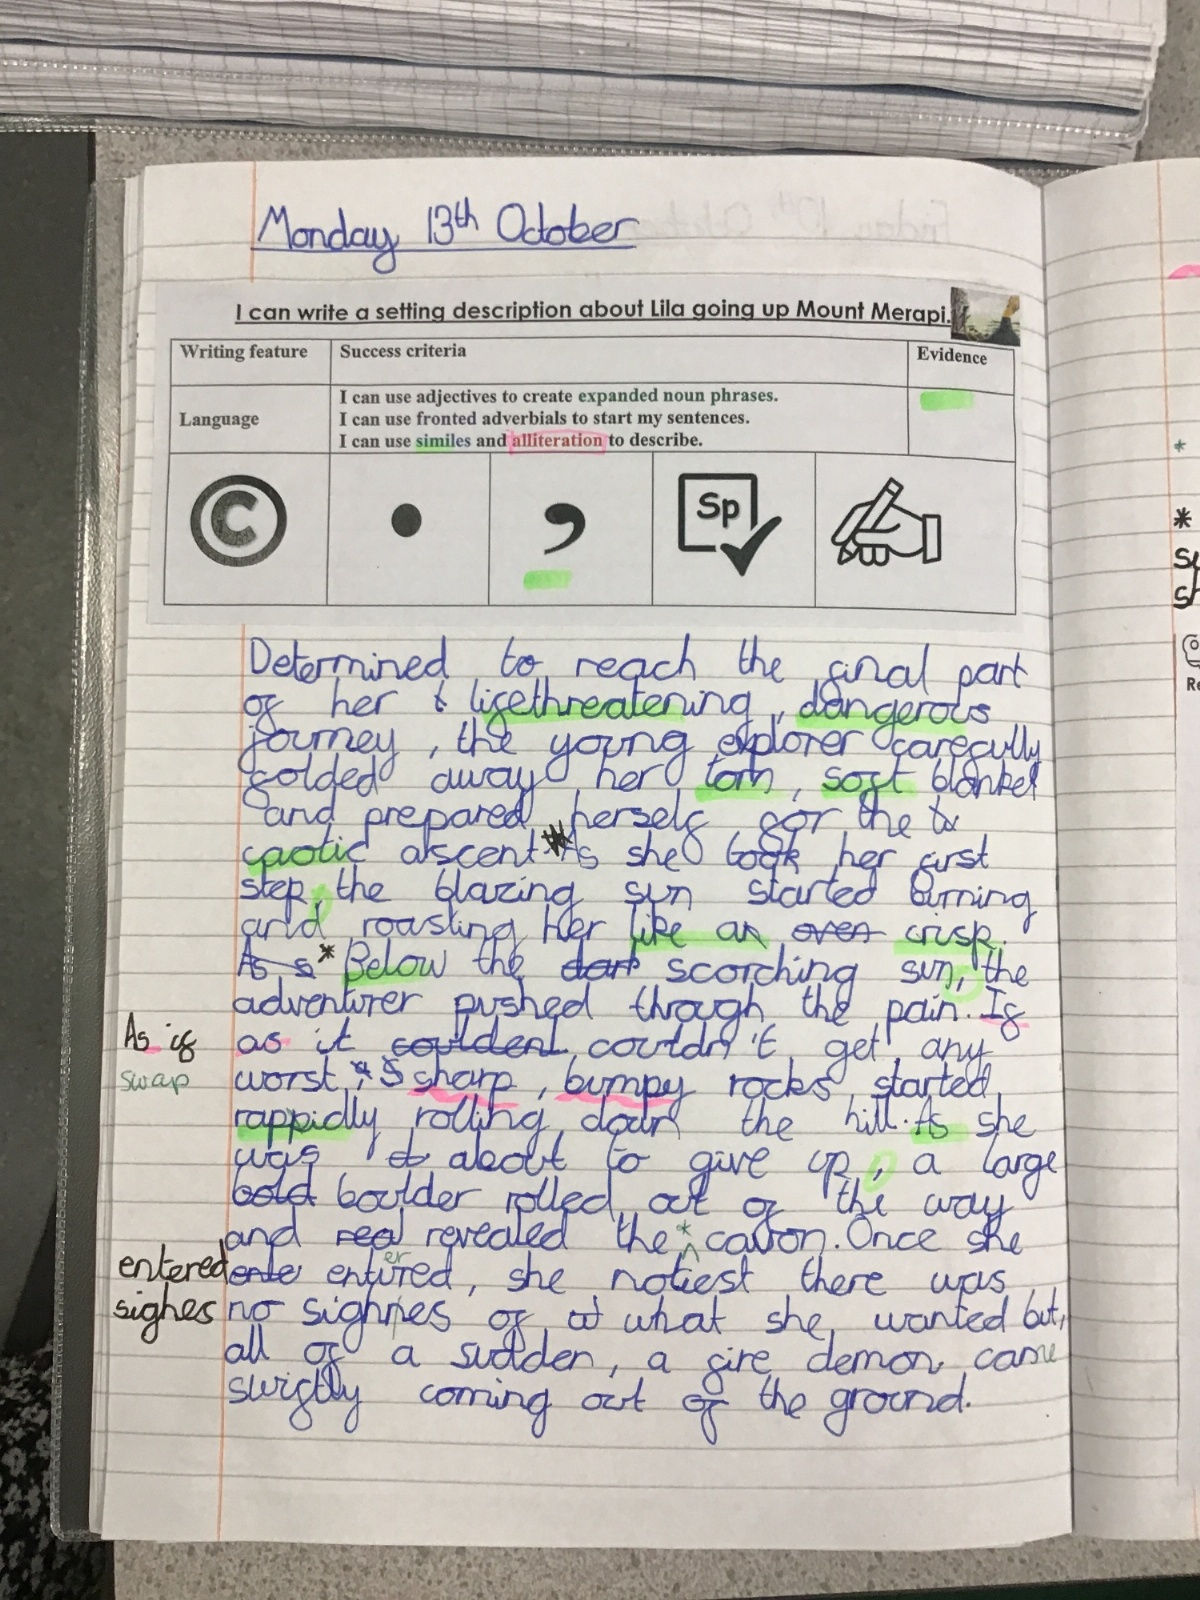 Monday 13th October
I can write a setting description about Lila going up Mount Merapi.
Writing feature Success criteria Evidence
Language
I can use adjectives to create expanded noun phrases.
I can use fronted adverbials to start my sentences.
I can use similes and alliteration to describe.
© • , Sp
Determined to reach the final part
of her t lifethreatening, dangerous
journey, the young explorer carefully
folded away her torn, soft blanket
and prepared herself for the
caotic ascent * As she took her first
step, the blazing sun started burning
and roasting her like an oven crisp.
As s * Below the dark scorching sun, the
adventurer pushed through the pain. If
As if
as it couldent couldn't get any
swap
worst, * S sharp, bumpy rocks started
rappidly rolling down the hill. As she
was about to give up, a large
bold boulder rolled out of the way
and real revealed the * cavon. Once she
entered
ente entured, er she notiest there was
sighes
no sighnes of what she wanted but,
all of a sudden, a fire demon came
swiftly coming out of the ground.
*
*
Re